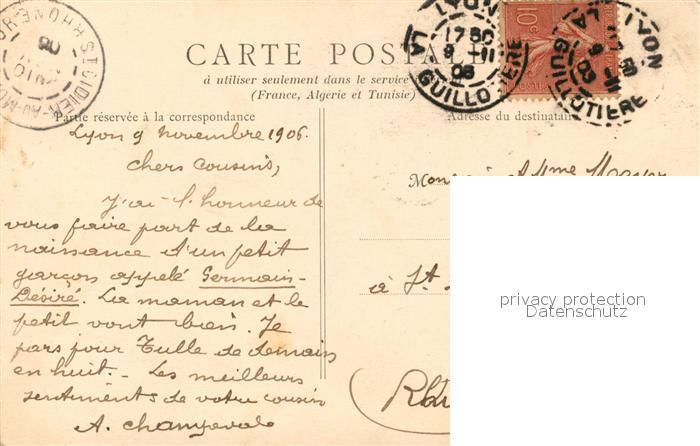 CARTE POSTALE
à utiliser seulement dans le service
(France, Algérie et Tunisie)
Partie réservée à la correspondance
Adresse du destinataire
Lyon 9 novembre 1906.
Chers Cousins,
J'ai l'honneur de
vous faire part de la
naissance d'un petit
garçon appelé Germain-
Désiré. La maman et le
petit vont bien. Je
pars pour Tulle de demain
en huit. - Les meilleurs
sentiments de votre cousin
A. Champeval
LYON
LA GUILLOTIERE
9 - 11
06
10c
LYON
LA GUILLOTIERE
RHONE
à St.
privacy protection
Datenschutz